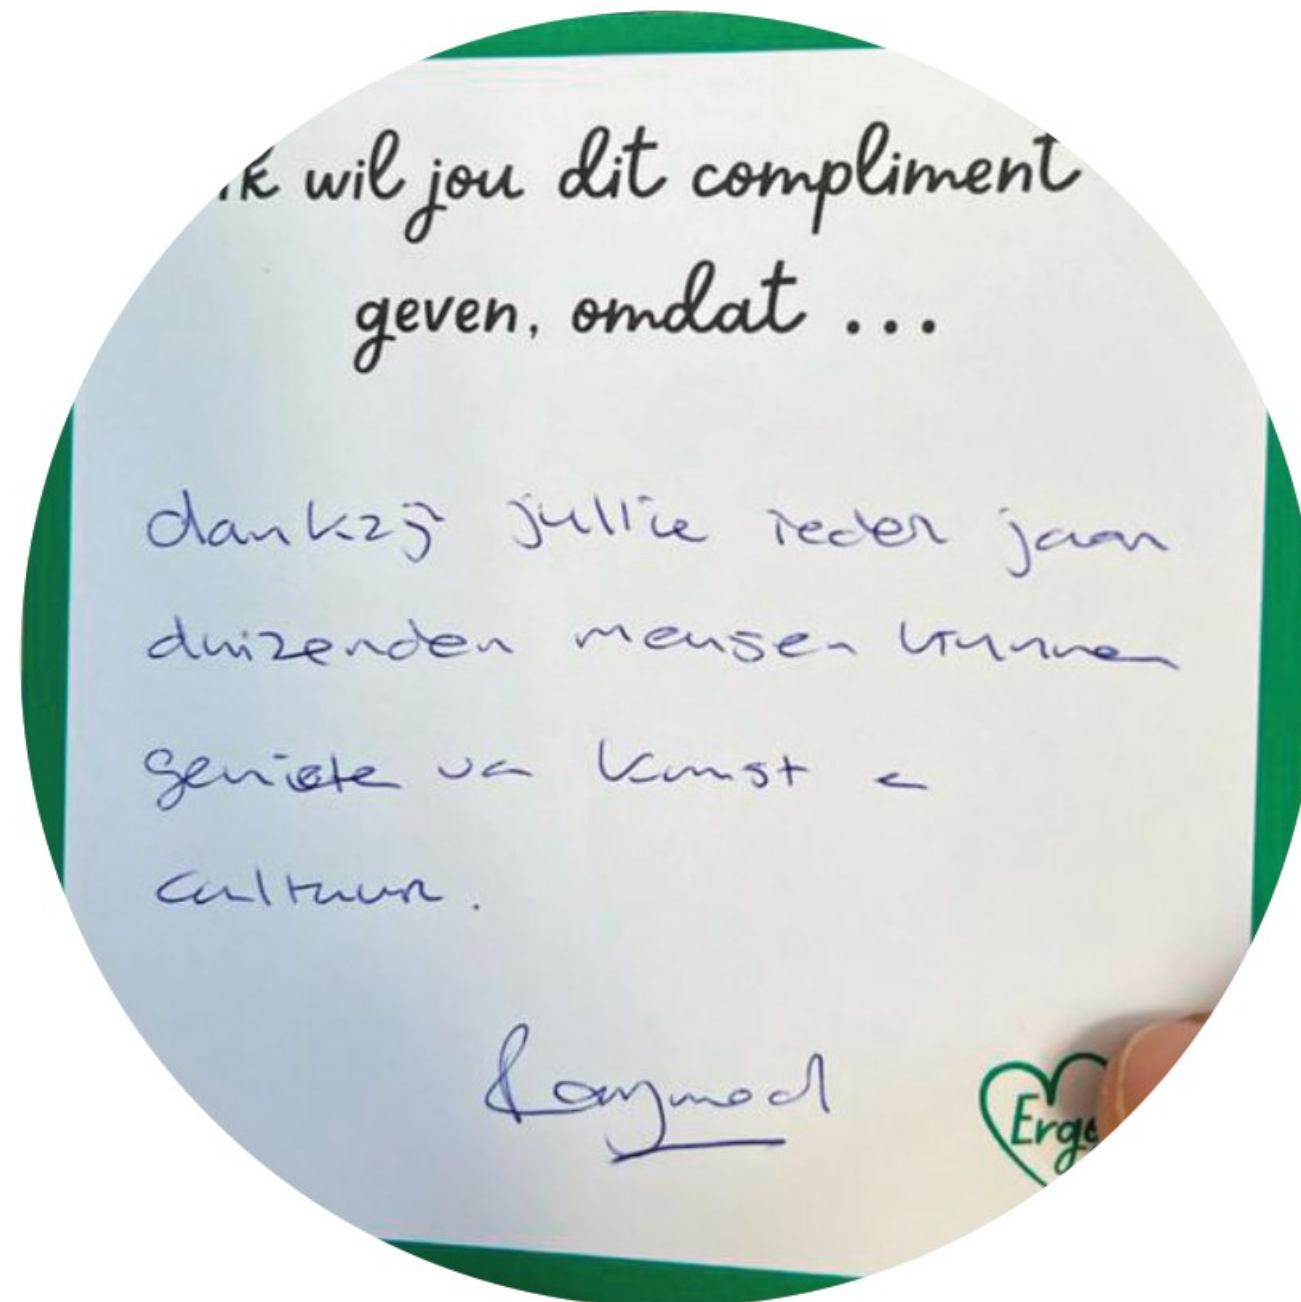 Ik wil jou dit compliment
geven, omdat ...
dankzij jullie ieder jaar
duizenden mensen kunnen
geniete va kunst e
cultuur.
Raymod
Ergo